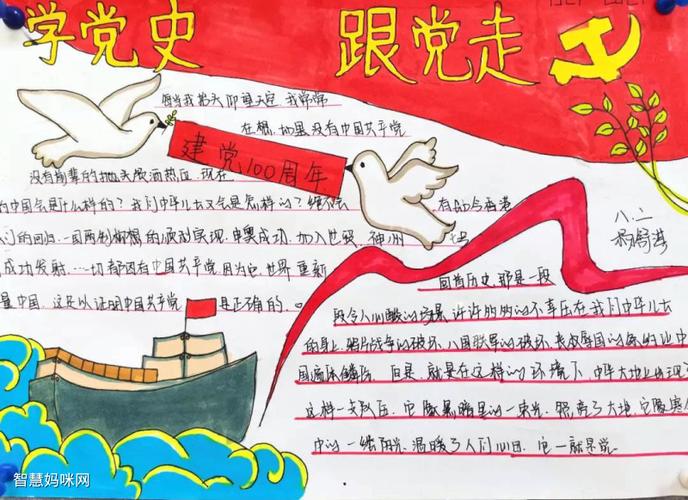 学党史 跟党走
每当我抬头仰望天空,我常常
在想,如果没有中国共产党
建党100周年
没有前辈的抛头颅洒热血,现在
的中国会是什么样的?我们中华儿女又会是怎样的?绝不会
有如今香港
们的回归,一国两制构想的顺利实现,申奥成功,加入世贸,神州
成功发射,一切都因有中国共产党,因为它,世界重新
量中国,这足以证明中国共产党 是正确的。
八.二
回首历史,那是一段
段令人心酸的
许许多多的不幸压在我们中华儿女
的身上,鸦片战争的破坏,八国联军的破坏,丧权辱国的条约让中
国遍体鳞伤。但是,就是在这样的环境下,中华大地出现了
这样一支队伍,它像黑暗里的一束光,照亮了大地,它像寒冬
中的一缕阳光,温暖了人们心田,它就是党。
智慧妈咪网